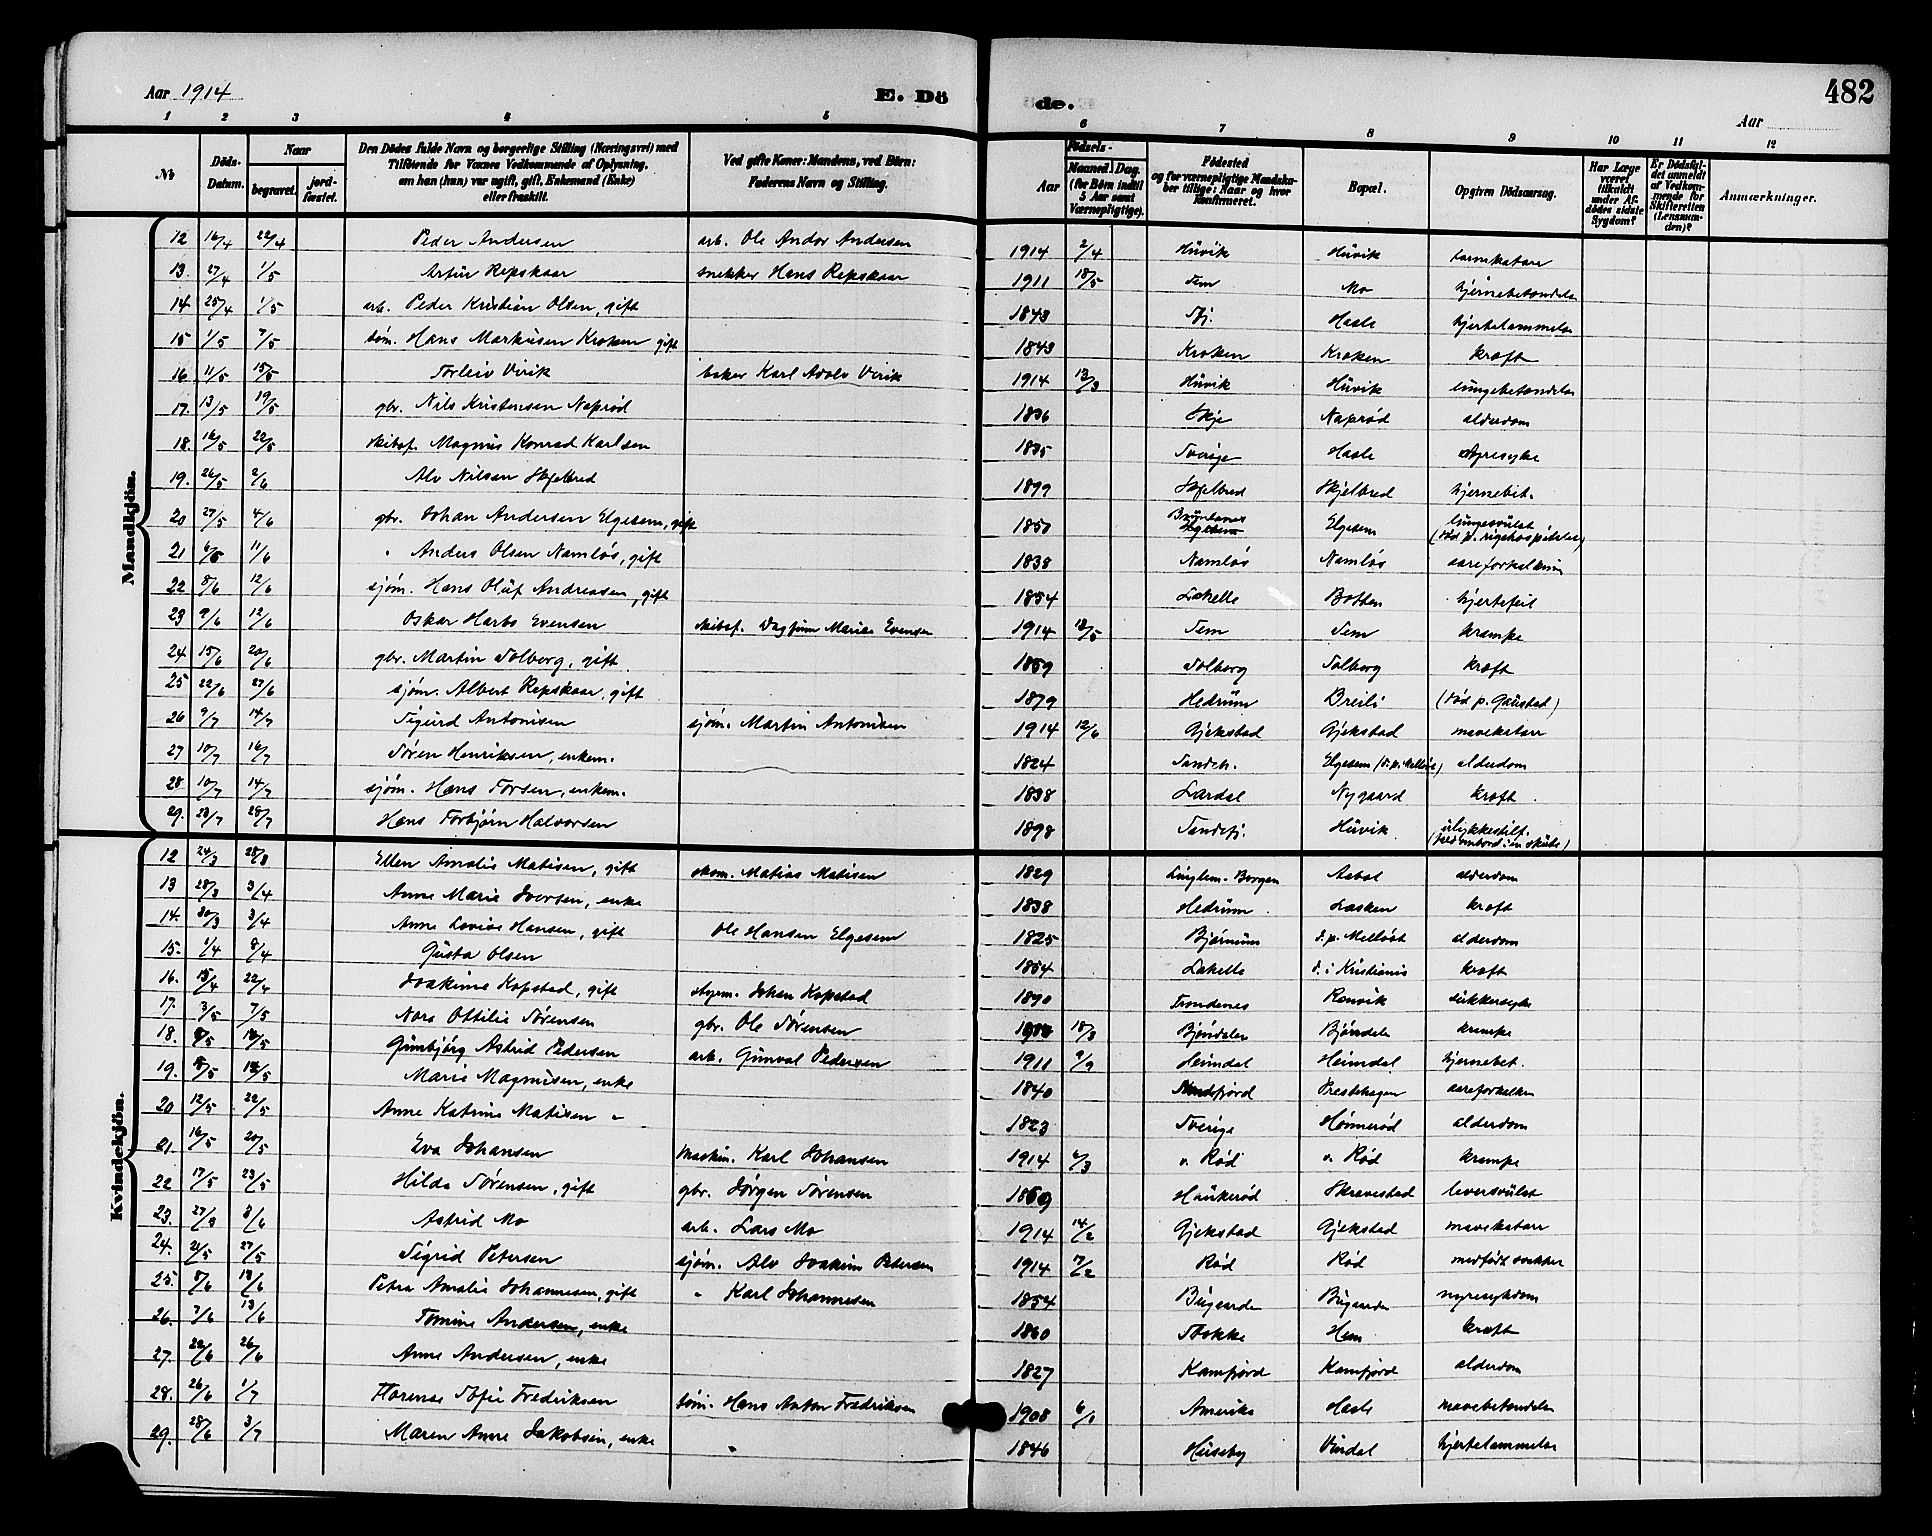 Aar 1914
E. Döde.
482
Aar
1 2 3 4 5 6 7 8 9 10 11 12
No
Döds-Datum.
Naar
begravet.
jordfæstet.
Den Dödes fulde Navn og borgerlige Stilling (Næringsvei) med Tilföiende for Voxnes Vedkommende af Oplysning, om han (hun) var ugift, gift, Enkemand (Enke) eller fraskilt.
Ved gifte Koner: Mandens, ved Börn: Faderens Navn og Stilling.
Födsels-
Aar
Maaned. Dag.
(for Börn indtil 5 Aar samt Værnepligtige).
Födested og for værnepligtige Mandskaber tillige: Naar og hvor konfirmeret.
Bopæl.
Opgiven Dödsaarsag.
Har Læge været tilkaldt under Afdödes sidste Sygdom?
Er Dödsfaldet anmeldt af Vedkommende for Skifteretten (Lensmanden)?
Anmærkninger.
Mandkjön.
12 16/4 22/4 Peder Andersen arb. Ole Andor Andersen 1914 2/4 Huvik Huvik tarmkatarr
13. 27/4 1/5 Artur Repskaar snekker Hans Repskaar 1911 18/5 Fem Mo hjernebetændelse
14 25/4 1/5 arb. Peder Kristian Olsen, gift 1843 Hasle hjertelammelse
15 1/5 7/5 søm. Hans Markusen Kroken gift 1843 Kroken Kroken kræft
16 11/5 15/5 Torleiv Virik baker Karl Adolv Virik 1914 13/3 Huvik Huvik lungebetændelse
17. 13/5 19/5 gbr. Nils Kristensen Naprød 1836 Naprød alderdom
18. 16/5 22/5 skibsf. Magnus Konrad Karlsen 1835 Sverige Hasle nyresyke
19. 26/5 2/6 Alv Nilsen Skjelbred 1899 Skjelbred Skjelbred hjernebet.
20 27/5 4/6 gbr. Johan Andersen Elgesem, gift 1850 Elgesem lungesvulst (død p. rigshospitalet)
21 6/6 11/6 " Anders Olsen Namløs, gift 1838 Namløs Namløs aareforkalkning
22 8/6 12/6 sjøm. Hans Oluf Andreassen, gift 1854 Lahelle Botten hjertefeil
23 9/6 12/6 Oskar Harbo Evensen skibsf. Dagfinn Marius Evensen 1914 13/5 Fem Fem krampe
24 15/6 20/6 gbr. Martin Solberg, gift 1859 Solberg Solberg kræft
25 22/6 27/6 sjøm. Albert Repskaar, gift 1879 Hedrum Breili (død p. Gaustad)
26 9/7 14/7 Sigurd Antonisen sjøm. Martin Antonisen 1914 12/6 Gjekstad Gjekstad mavekatarr
27 10/7 16/7 Søren Henriksen, enkem. 1824 Sandeh. Elgesem (d. p. Melløst) alderdom
28 10/7 14/7 sjøm. Hans Torsen, enkem. 1838 Lardal Nygaard kræft
29. 23/7 28/7 Hans Torbjørn Halvorsen 1898 Sandefj. Huvik ulykkestilf. (faldt ombord i en skute)
Kvindekjön.
12 24/3 28/3 Ellen Amalie Matisen, gift skom. Matias Matisen 1829 Linglem. Borgen Aabol alderdom
13 28/3 3/4 Anne Marie Iversen, enke 1838 Hedrum Lasken kræft
14. 30/3 3/4 Anne Lovise Hansen, gift Ole Hansen Elgesem 1825 Bjørnum d. p. Melløst alderdom
15. 1/4 8/4 Gusta Olsen 1854 Lahelle d. i Kristiania kræft
16. 15/4 22/4 Joakime Kopstad, gift styrm. Johan Kopstad 1890 Trondenes Ranvik sukkersyke
17. 3/5 7/5 Nora Ottilie Sørensen gbr. Ole Sørensen 1914 18/3 Bjøndalen Bjørndalen krampe
18. 8/5 Gunbjørg Astrid Pedersen arb. Gunval Pedersen 1911 9/9 Heimdal Heimdal hjernebet.
19. 8/5 Marie Magnusen, enke 1840 Prestehagen aareforkalken
20 12/5 22/5 Anne Katrine Matisen " 1823 Sverige Hønnerød alderdom
21. 16/5 20/5 Eva Johansen maskin. Karl Johansen 1914 6/3 v. Rød v. Rød krampe
22 17/5 23/5 Hilda Sørensen, gift gbr. Jørgen Sørensen 1869 Haukerød Skravestad leversvulst
23. 27/5 3/6 Astrid Mo arb. Lars Mo 1914 14/2 Gjekstad Gjekstad mavekatarr
24. 21/5 27/5 Sigrid Petersen sjøm. Alv Joakim Petersen 1914 7/2 Rød Rød medfødt svakhet
25. 8/6 13/6 Petra Amalie Johannesen, gift " Karl Johannesen 1854 Bugaarden Bugaarden nyresykdom
26. 7/6 13/6 Tomine Andersen, enke 1860 Stokke Hem kræft
27. 22/6 26/6 Anne Andersen, enke 1827 Kamfjord Kamfjord alderdom
28. 26/6 1/7 Florense Sofie Fredriksen søm. Hans Anton Fredriksen 1908 6/1 Amerika Hasle mavebetændelse
29. 28/6 3/7 Maren Anne Jakobsen, enke 1846 Huseby Vindal hjertelammelse